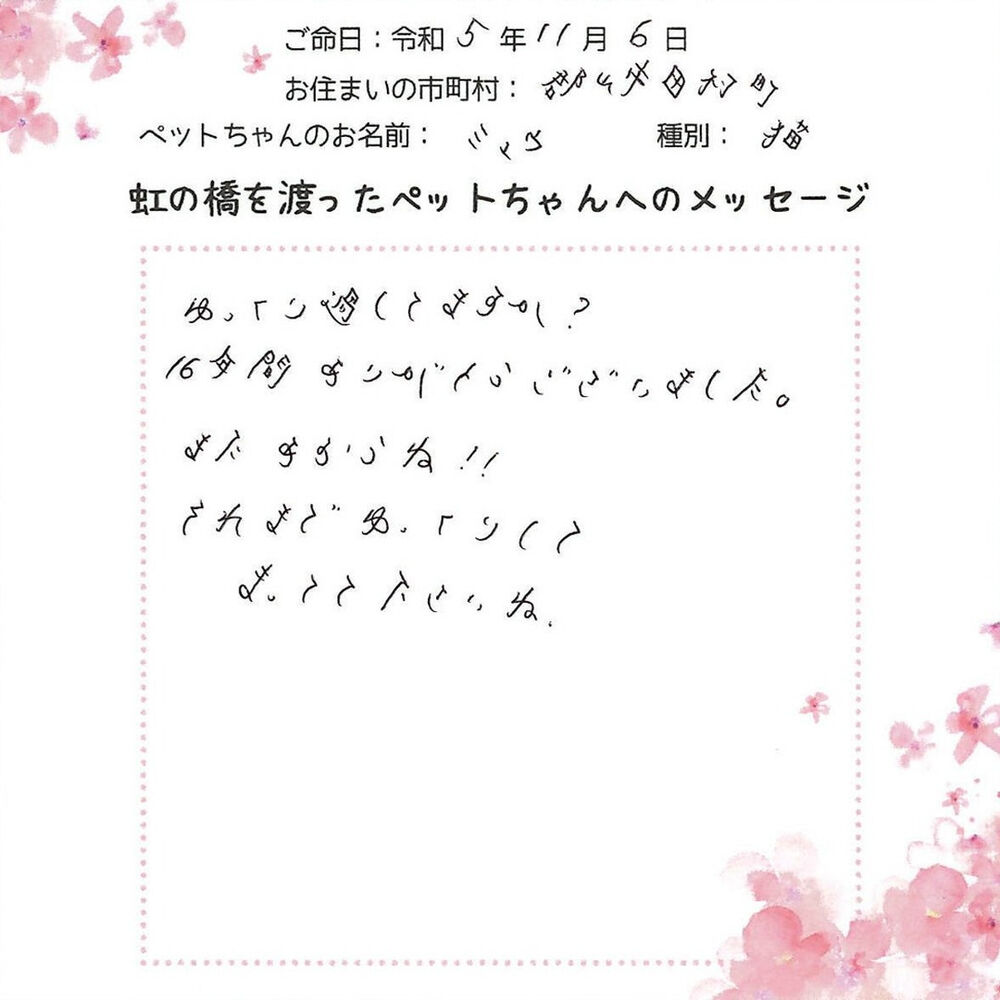 ご命日：令和 5 年 11 月 6 日
お住まいの市町村： 郡山市田村町
ペットちゃんのお名前： ミャウ 種別： 猫
虹の橋を渡ったペットちゃんへのメッセージ
ゆっくり過してますか？
16年間 ありがとうございました。
また 会おうね!!
それまで ゆっくりして
まっててくださいね.